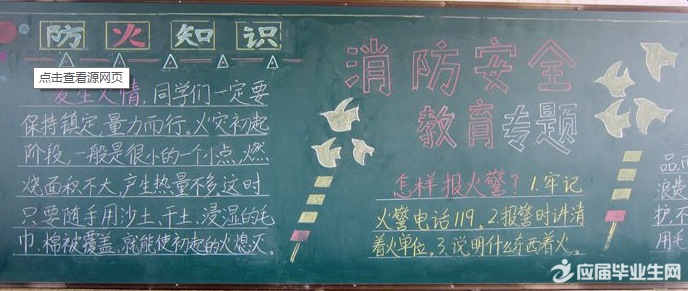 防火知识
点击查看源网页
发生火情,同学们一定要
保持镇定,量力而行。火灾初起
阶段,一般是很小的一个小点,燃
烧面积不大,产生热量不多,这时
只要随手用沙土、干土、浸湿的毛
巾、棉被覆盖,就能使初起的火熄灭。
消防安全
教育专题
怎样报火警?1.牢记
火警电话119。2.报警时讲清
着火单位。3.说明什么东西着火。
品
浪费
护,不
用毛
应届毕业生网